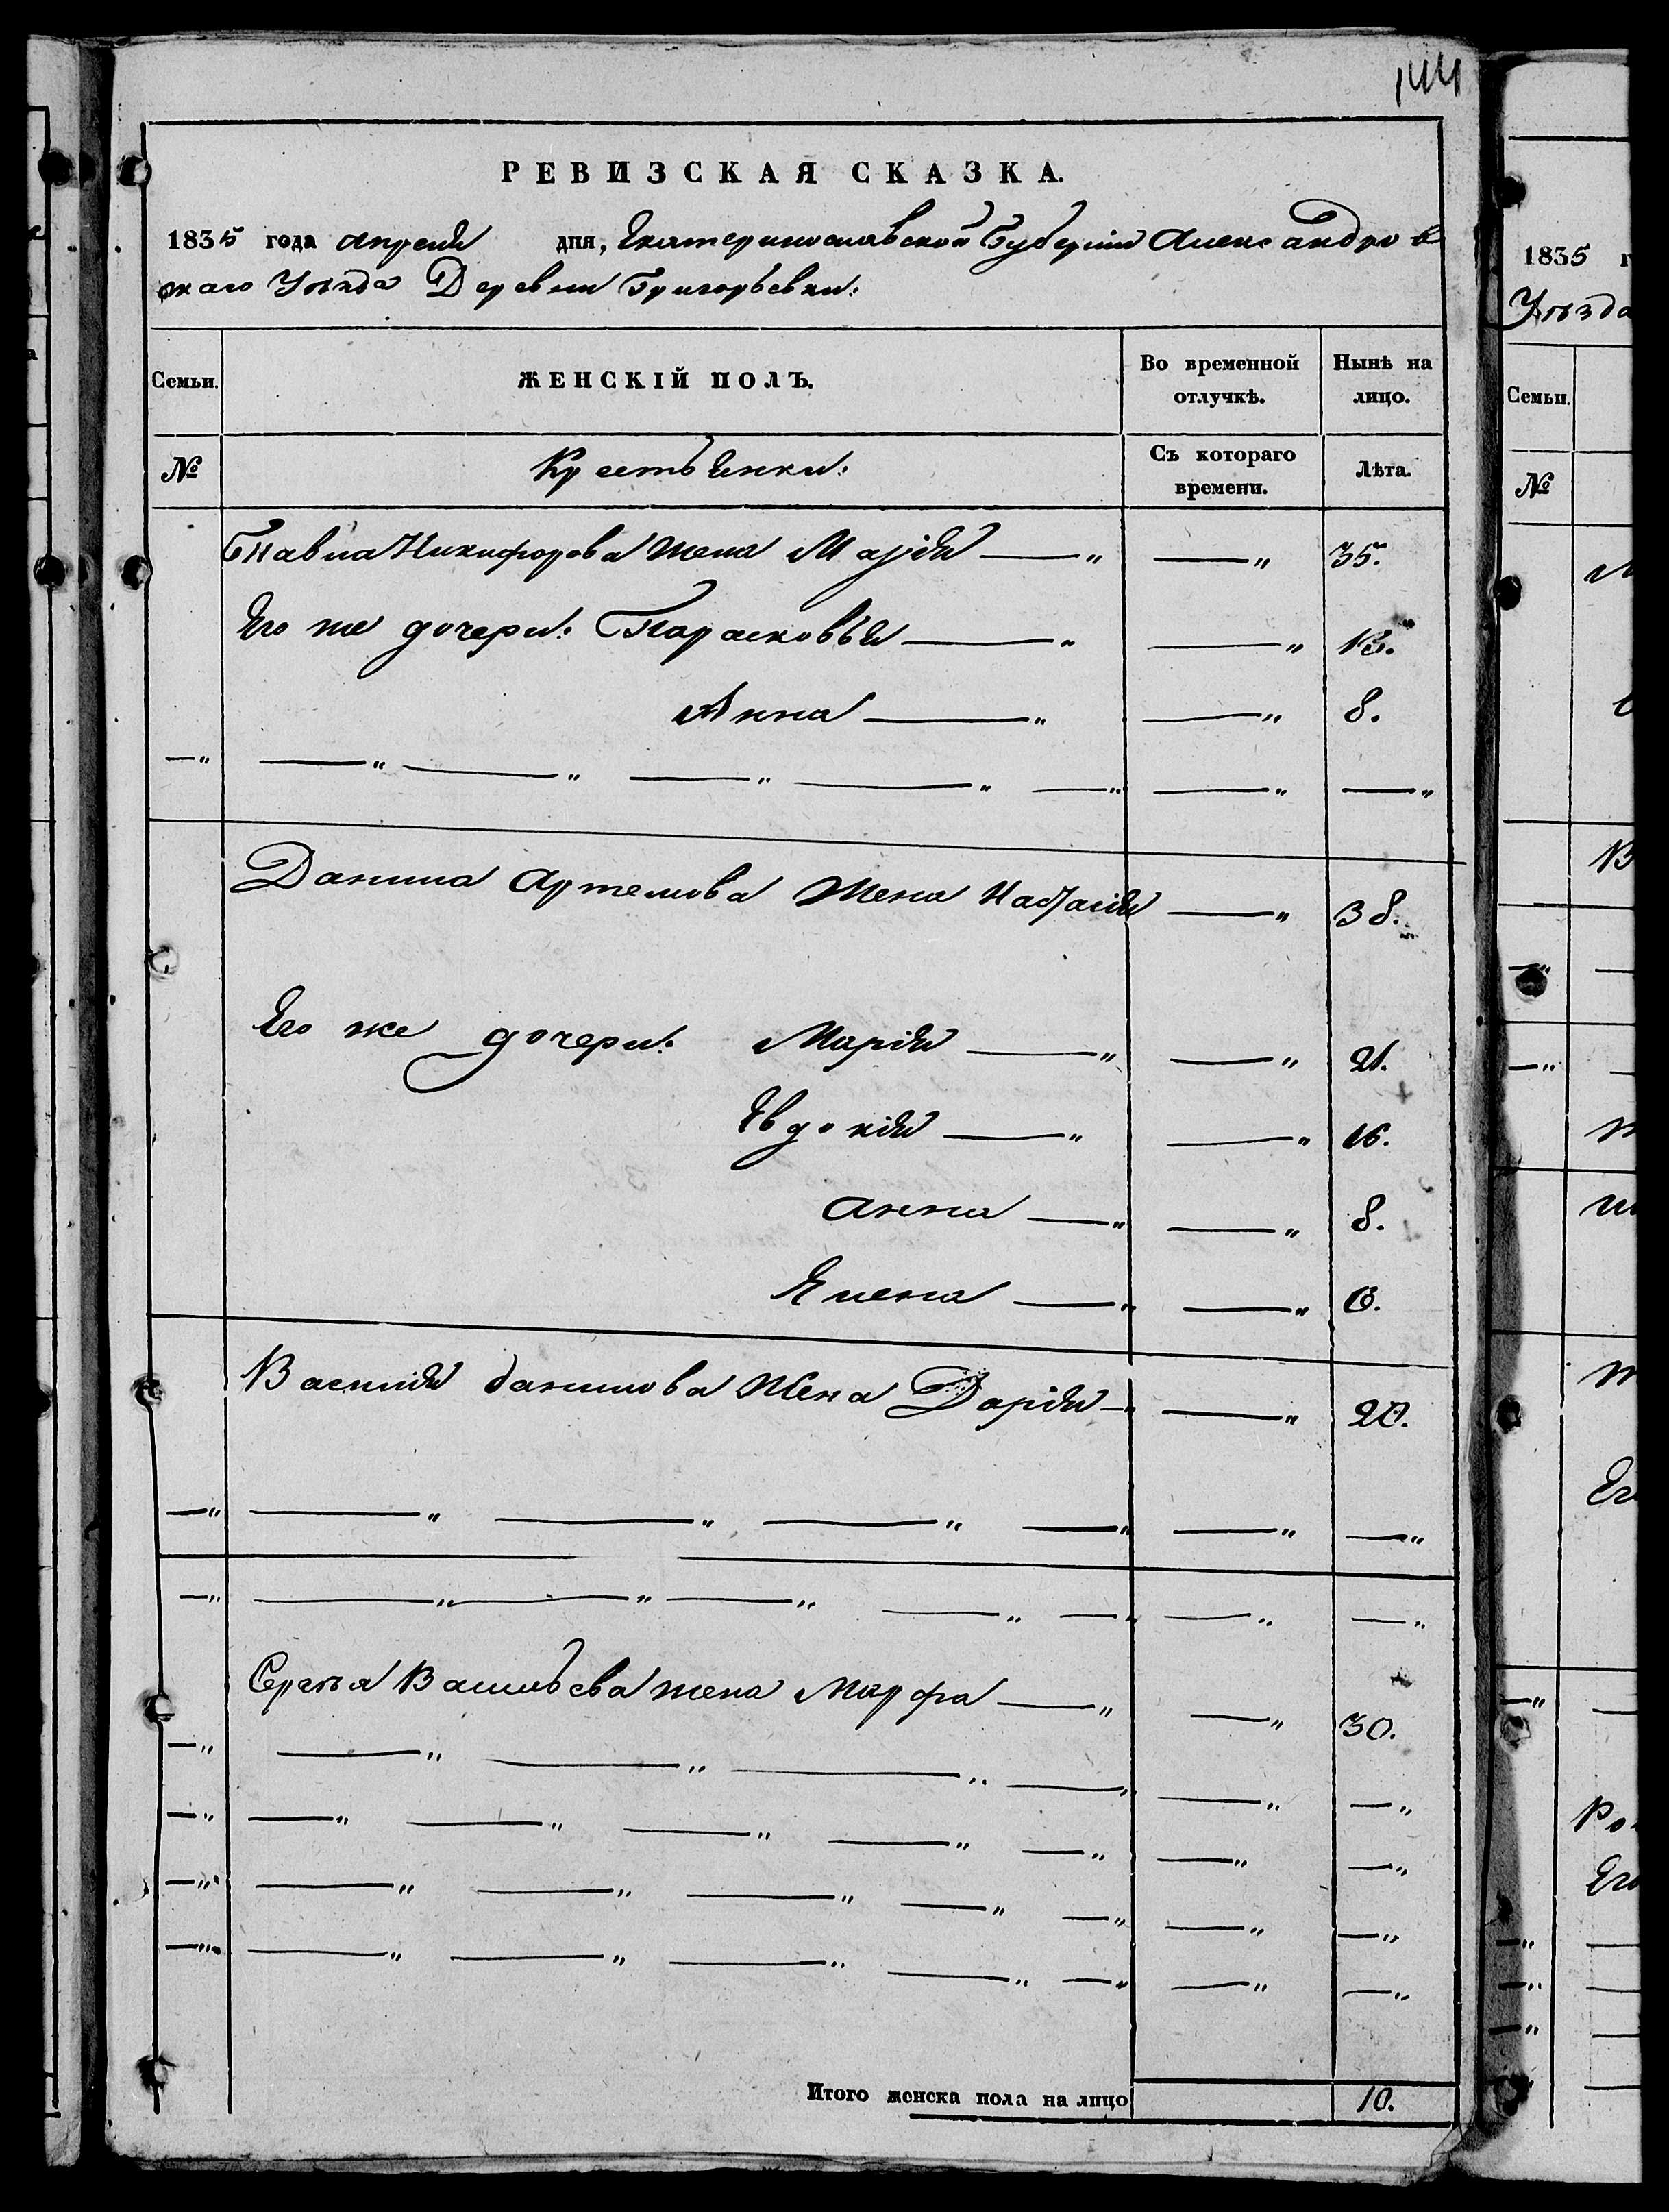 144
РЕВИЗСКАЯ СКАЗКА.
1835 года апреля дня, Екатеринославской Губерніи Александров
скаго Уѣзда Деревни Григорьевки:
Семьи. ЖЕНСКІЙ ПОЛЪ. Во временной отлучкѣ. Нынѣ на лицо.
№ Крестьянки: Съ котораго времени. Лѣта.
Павла Никифорова жена Марія — " — " 35.
Его же дочери: Парасковья — " — " 13.
Анна — " — " 8.
— " — " — " — " — " — " — " — "
Данила Артемова жена Настасія — " 38.
Его же дочери: Марія — " — " 21.
Евдокія — " — " 16.
Анна — " — " 8.
Елена — " — " 6.
Василія Данилова жена Дарія — " — " 20.
— " — " — " — " — " — " — "
— " — " — " — " — " — " — " — "
Сергѣя Васильева жена Марфа — " — " 30.
— " — " — " — " — " — " — "
— " — " — " — " — " — " — " — "
— " — " — " — " — " — " — " — "
— " — " — " — " — " — " — " — "
Итого женска пола на лицо 10.
1835 г
Уѣзда
Семьи.
№